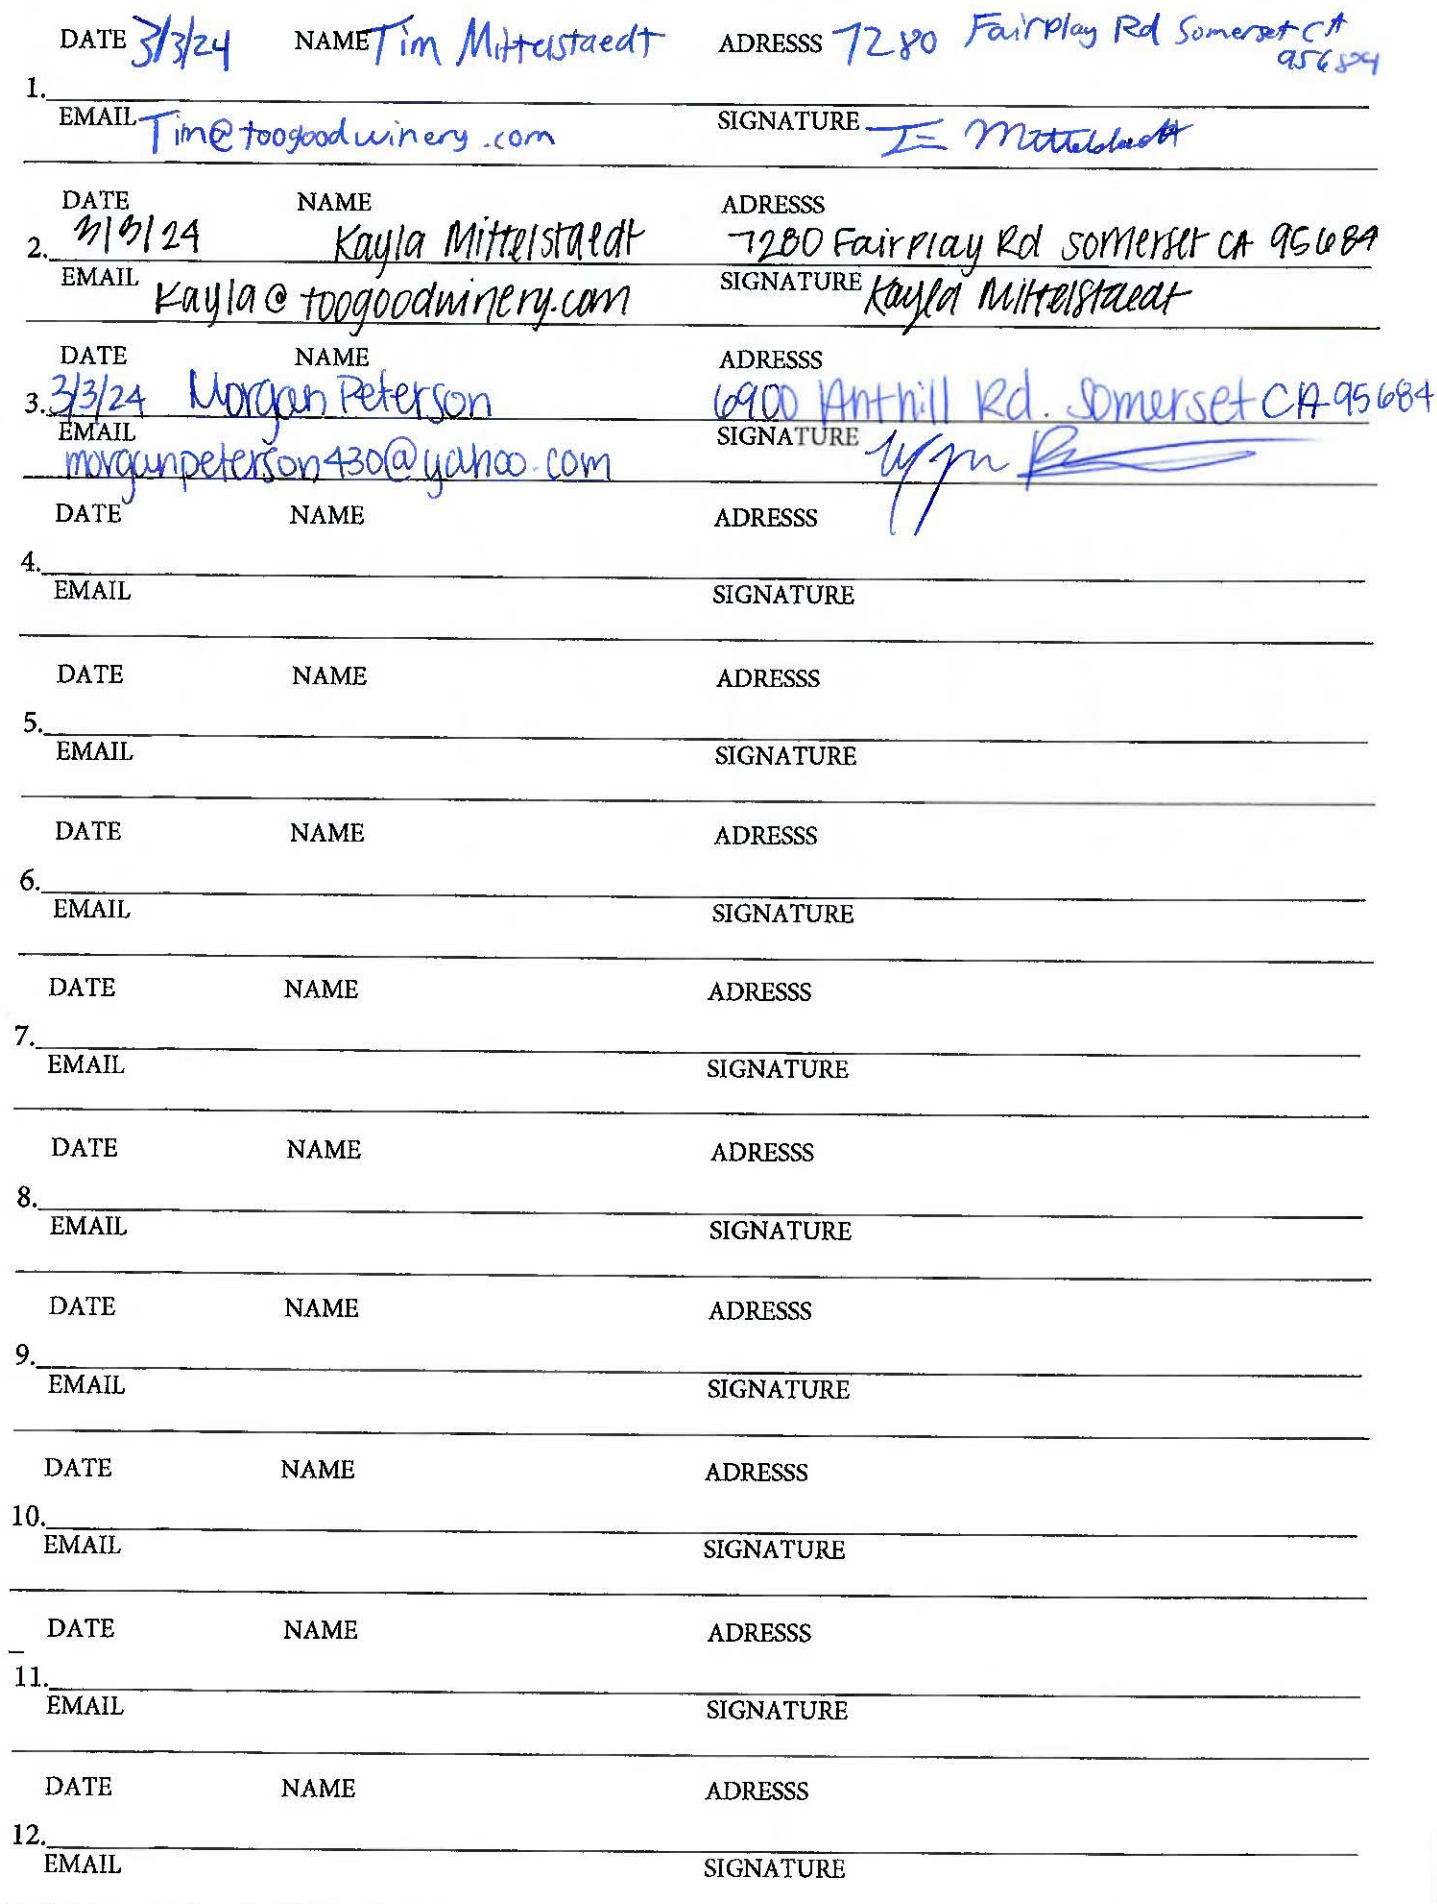 DATE 3/3/24 NAME Tim Mittelstaedt ADRESSS 7280 Fairplay Rd Somerset CA
95684
1.
EMAIL Tim@toogoodwinery.com SIGNATURE Mittelstaedt
DATE NAME ADRESSS
2. 3/3/24 Kayla Mittelstaedt 7280 Fairplay Rd Somerset CA 95684
EMAIL Kayla@toogoodwinery.com SIGNATURE Kayla Mittelstaedt
DATE NAME ADRESSS
3. 3/3/24 Morgan Peterson 6900 Anthill Rd. Somerset CA 95684
EMAIL SIGNATURE
morganpeterson430@yahoo.com
DATE NAME ADRESSS
4.
EMAIL SIGNATURE
DATE NAME ADRESSS
5.
EMAIL SIGNATURE
DATE NAME ADRESSS
6.
EMAIL SIGNATURE
DATE NAME ADRESSS
7.
EMAIL SIGNATURE
DATE NAME ADRESSS
8.
EMAIL SIGNATURE
DATE NAME ADRESSS
9.
EMAIL SIGNATURE
DATE NAME ADRESSS
10.
EMAIL SIGNATURE
DATE NAME ADRESSS
11.
EMAIL SIGNATURE
DATE NAME ADRESSS
12.
EMAIL SIGNATURE